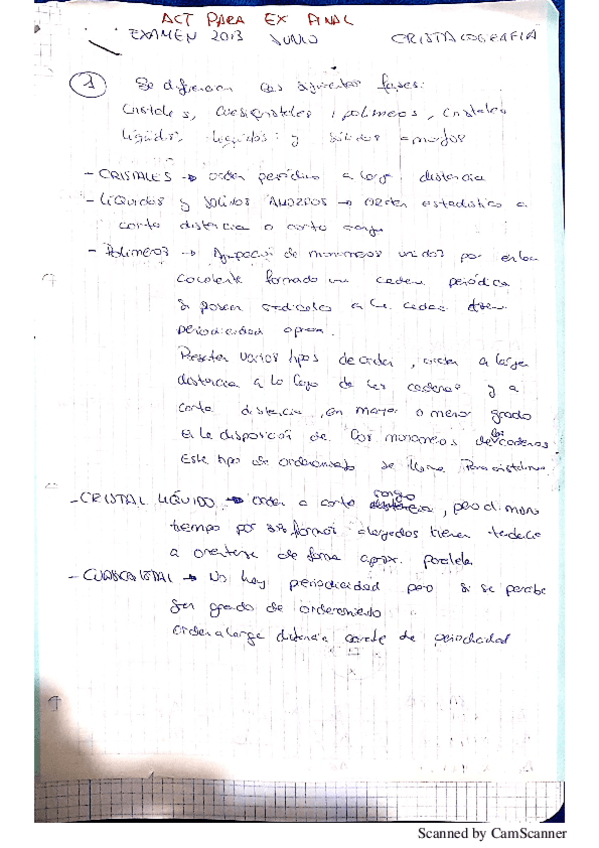 ACT PARA EX FINAL
EXAMEN 2013 JUNIO CRISTALOGRAFIA
1 Se diferencian las siguientes fases:
Cristales, cuasicristales, polimeros, cristales
liquidos, liquidos y sólidos amorfos
- CRISTALES → orden periódico a larga distancia
- LÍQUIDOS y SOLIDOS AMORFOS → orden estadístico a
corta distancia o corto rango
- POLIMEROS → Agrupación de monomeros unidos por enlace
covalente formando una cadena periódica
Si poseen radicales a la cadena
periodicidad
Presentan varios tipos de orden, orden a larga
distancia a lo largo de las cadenas y a
corta distancia, en mayor o menor grado
en la disposición de los monomeros de las cadenas
Este tipo de ordenamiento se llama Paracristalino
- CRISTAL LÍQUIDO → orden a corto rango, pero al mismo
tiempo por sus formas alargadas tienen tendencia
a orientarse de forma aprox. paralela
- CUASICRISTAL → No hay periodicidad pero si se percibe
un grado de ordenamiento
orden a larga distancia carente de periodicidad
Scanned by CamScanner